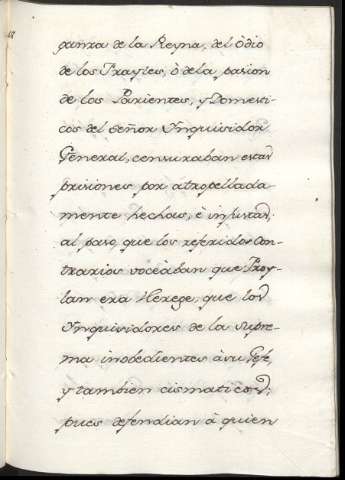 punta de la Reyna, del òdio
de los Frayles, ò de la pasion
de los Parientes, y Domesti-
cos del Señor Ynquisidor
General, censuraban estas
prisiones por atropellada-
mente hechas, è injustas,
al paso, que los referidos Con-
trarios voceaban que Froy-
lan era Herege, que los
Ynquisidores de la Supre-
ma inobedientes à su Gefe,
y tambien cismaticos;
pues defendian à quien